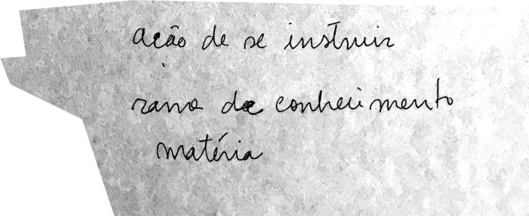 ação de se instruir
ramo de conhecimento
matéria